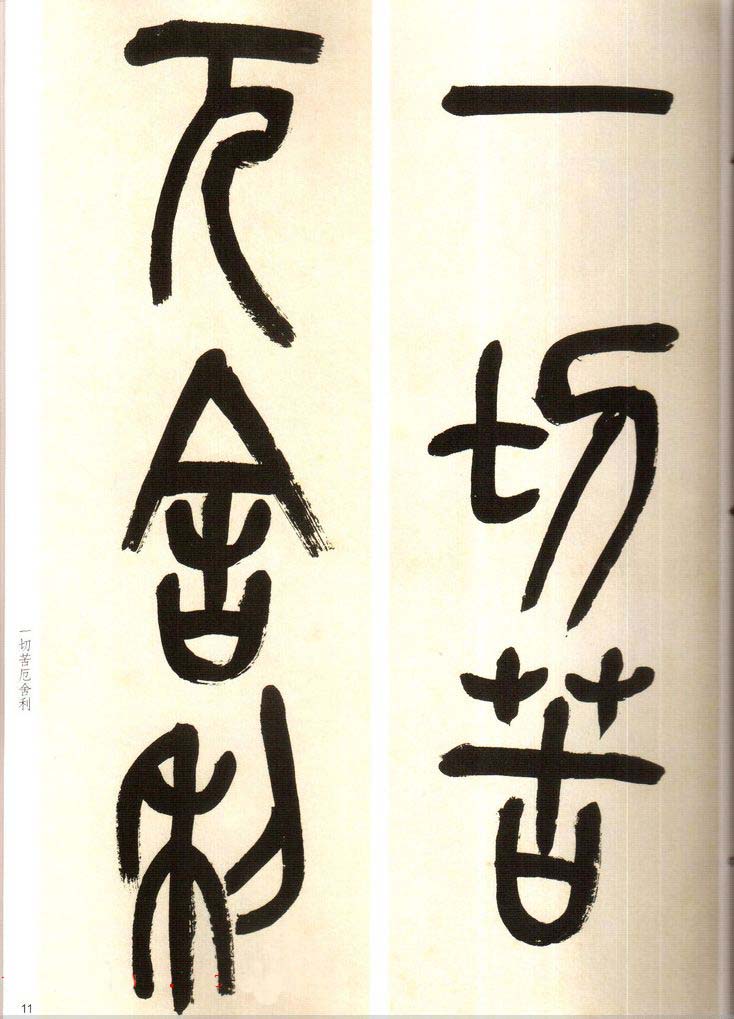 一切苦
厄舍利
一切苦厄舍利
11